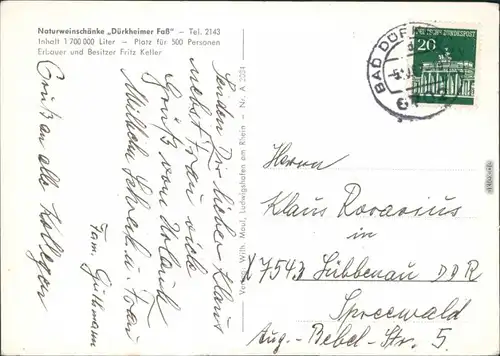 Naturweinschänke „Dürkheimer Faß" – Tel. 2143
Inhalt 1 700 000 Liter – Platz für 500 Personen
Erbauer und Besitzer Fritz Keller
Senden Dir lieber Klaus
nebst Frau viele
Grüße vom Urlaub
Wilhelm u. Frau
Fam. Guthmann
Gruß an alle Kollegen
Verlag Wilh. Maul, Ludwigshafen am Rhein – Nr. A 2224
DEUTSCHE BUNDESPOST
20
BAD DÜRKHEIM
Herrn
Klaus Rovarius
in
X7543 Lübbenau DDR
Spreewald
Aug.-Bebel-Str. 5.